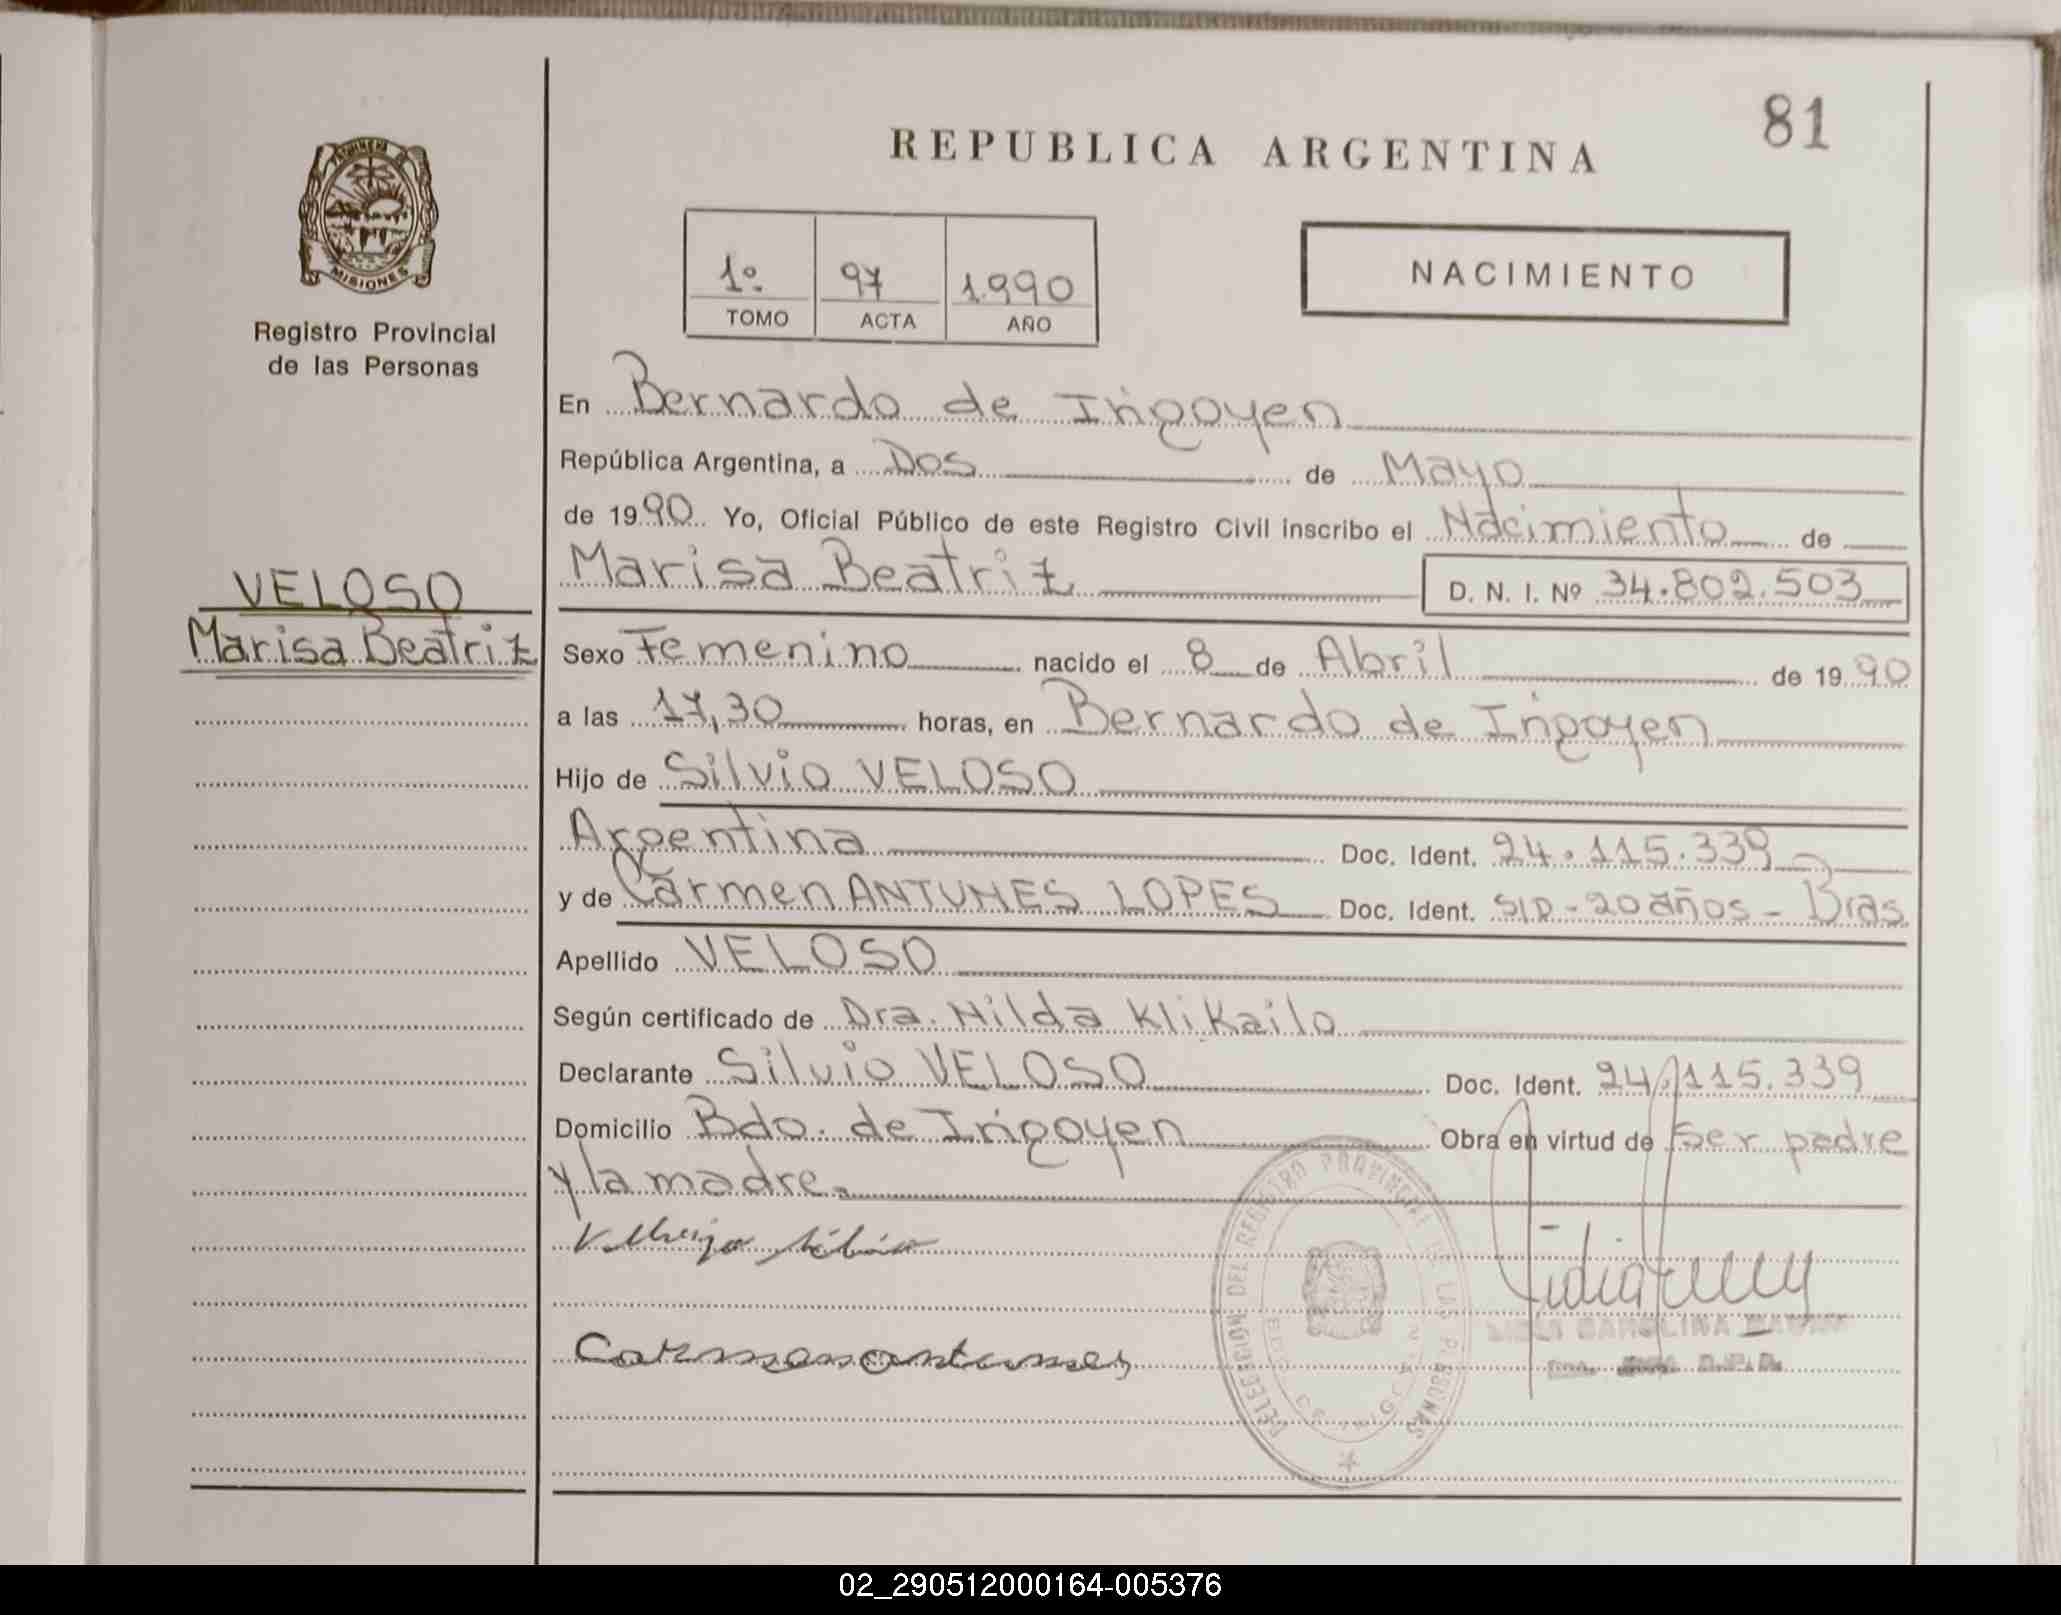 81
REPUBLICA ARGENTINA
MISIONES
Registro Provincial
de las Personas
1º 97 1.990
TOMO ACTA AÑO
NACIMIENTO
En Bernardo de Irigoyen
República Argentina, a Dos de Mayo
de 1990. Yo, Oficial Público de este Registro Civil inscribo el Nacimiento de
Marisa Beatriz D. N. I. Nº 34.802.503
VELOSO
Marisa Beatriz
Sexo Femenino nacido el 8 de Abril de 1990
a las 17,30 horas, en Bernardo de Irigoyen
Hijo de Silvio VELOSO
Argentina Doc. Ident. 24.115.339
y de Carmen ANTUNES LOPES Doc. Ident. S/D - 20 años - Bras.
Apellido VELOSO
Según certificado de Dra. Hilda Klikailo
Declarante Silvio VELOSO Doc. Ident. 24.115.339
Domicilio Bdo. de Irigoyen Obra en virtud de Ser padre
y la madre.
Carmen antunes
DELEGACIÓN DEL REGISTRO PROVINCIAL DE LAS PERSONAS
CAROLINA
02_290512000164-005376